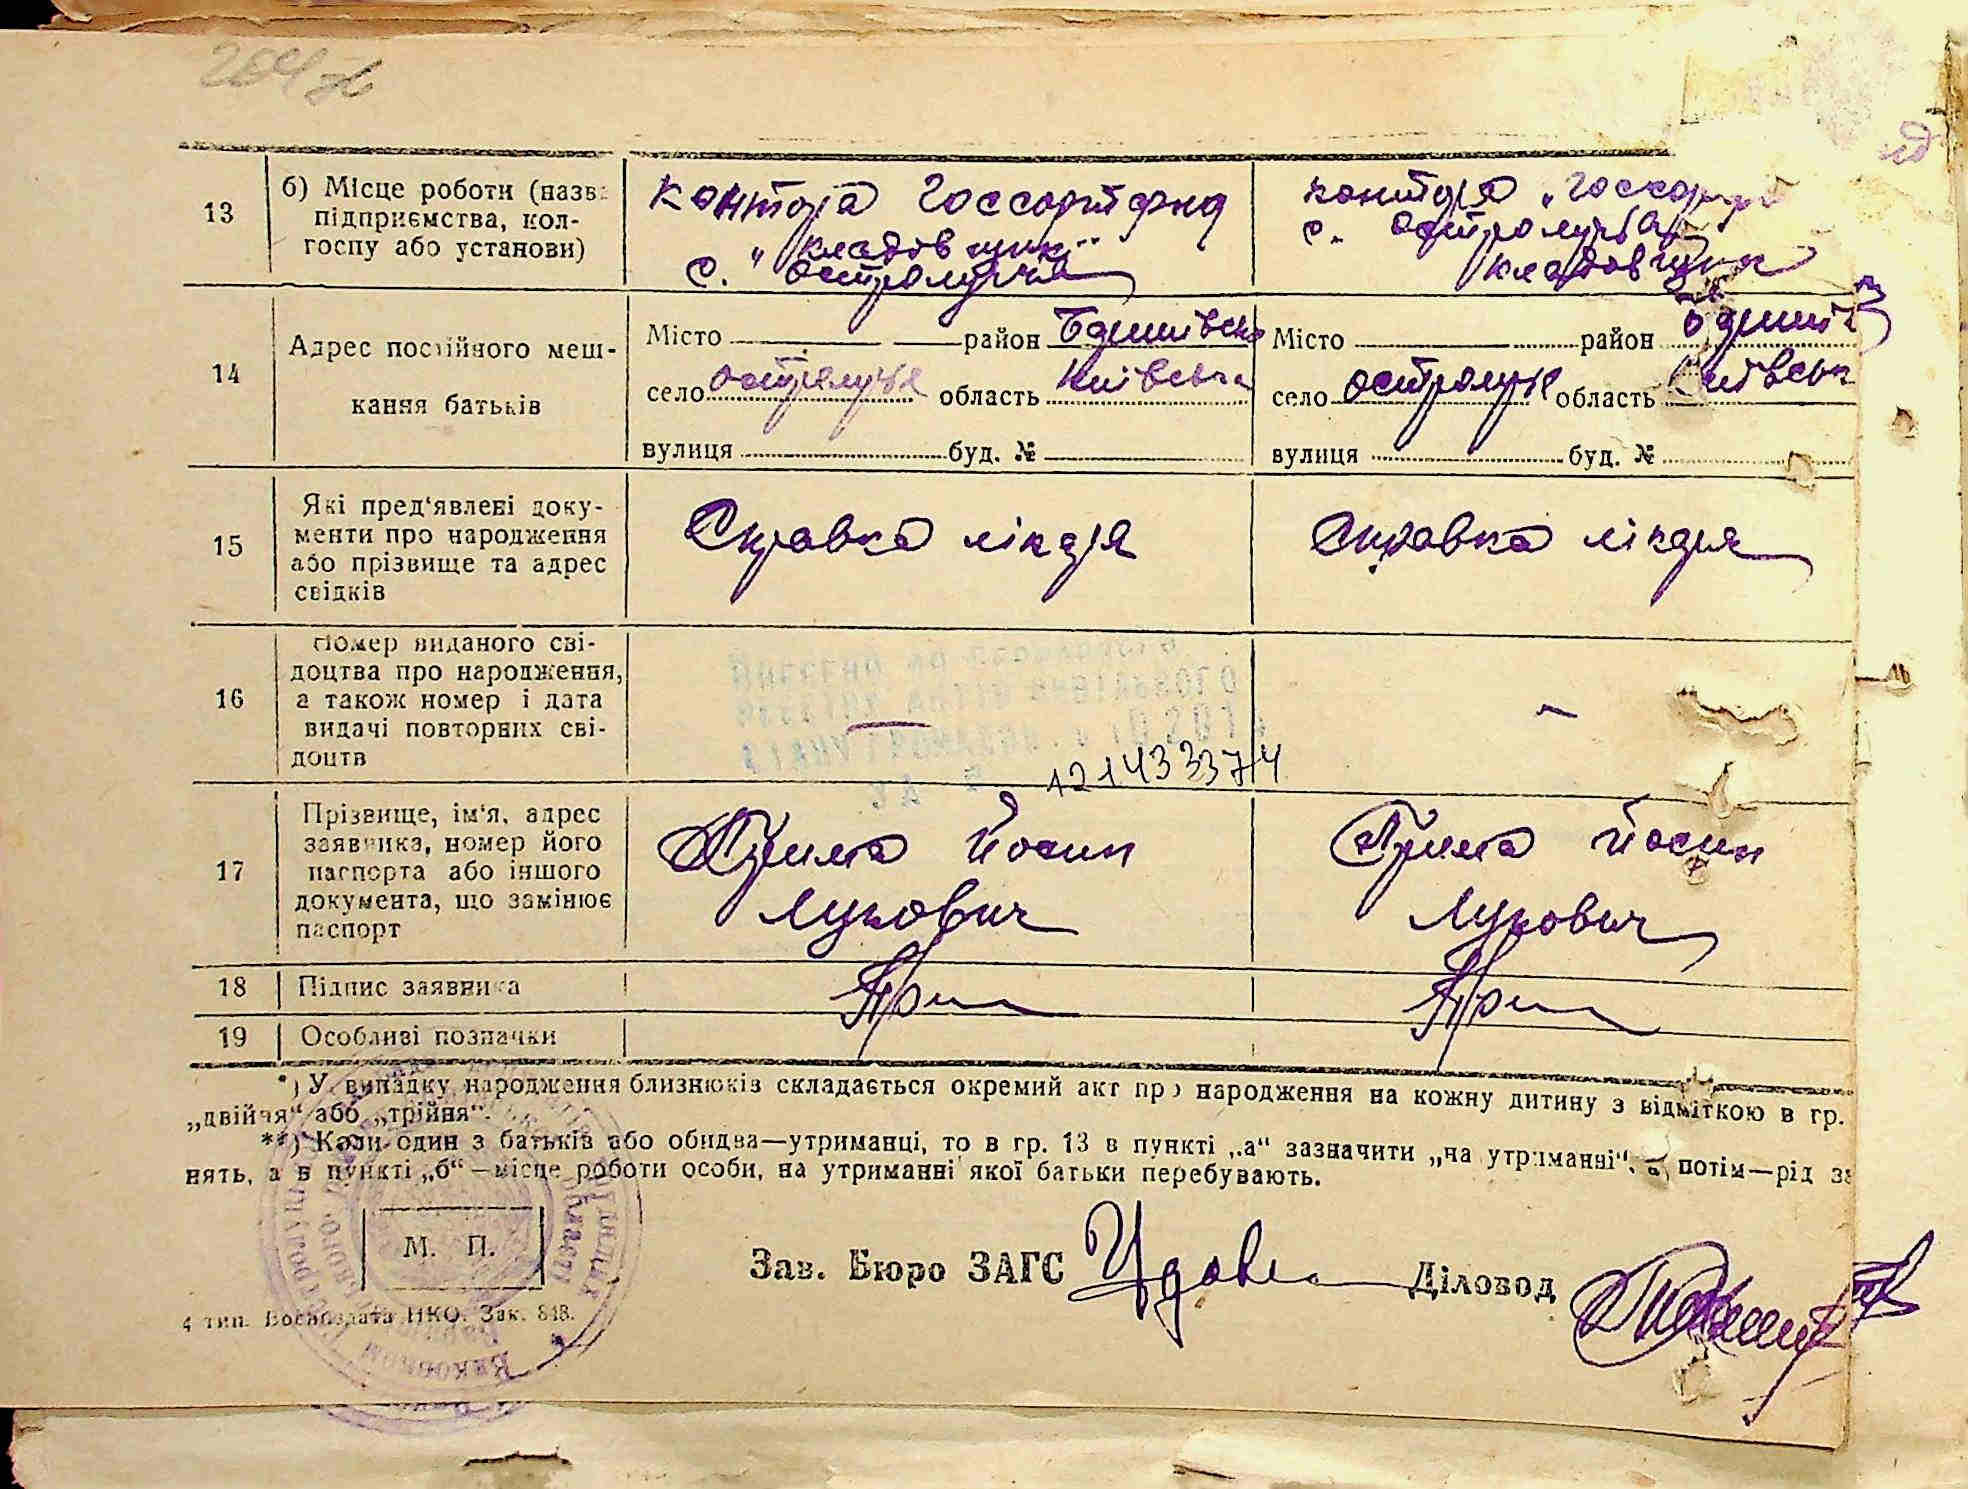 13
б) Місце роботи (назва
підприємства, кол-
госпу або установи)
контора Госсортфонд
"кладовщик"
с. Остролуччя
контора "Госсортф
с. Остролуччя
кладовщик
14
Адрес постійного меш-
кання батьків
Місто район
село Остролуччя область Київська
вулиця буд. №
Місто район
село Остролуччя область Київськ
вулиця буд. №
15
Які пред'явлені доку-
менти про народження
або прізвище та адрес
свідків
Справка лікаря
Справка лікаря
16
Номер виданого сві-
доцтва про народження,
а також номер і дата
видачі повторних сві-
доцтв
—
121433374
—
17
Прізвище, ім'я, адрес
заявника, номер його
паспорта або іншого
документа, що замінює
паспорт
Йосип
Лукович
Йосип
Лукович
18
Підпис заявника
19
Особливі позначки
*) У випадку народження близнюків складається окремий акт про народження на кожну дитину з відміткою в гр.
„двійня“ або „трійня“.
**) Коли один з батьків або обидва—утриманці, то в гр. 13 в пункті „а“ зазначити „на утриманні“, а потім—рід за
нять, а в пункті „б“—місце роботи особи, на утриманні якої батьки перебувають.
М. П.
Зав. Бюро ЗАГС
Діловод
4 тип. Воениздата НКО. Зак. 848.